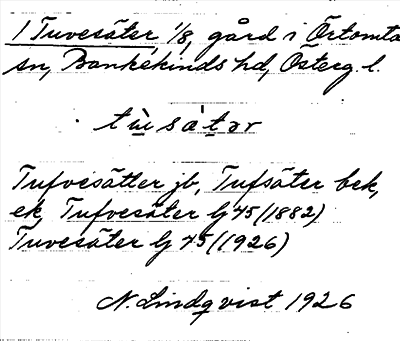 1 Tuvesäter 1/8, gård i Örtomta
sn, Bankekinds hd, Österg. l.
tùsàtər
Tufvesätter jb, Tufsäter bek,
ek, Tufvesäter lj 45 (1882)
Tuvesäter lj 45 (1926)
N. Lindqvist 1926